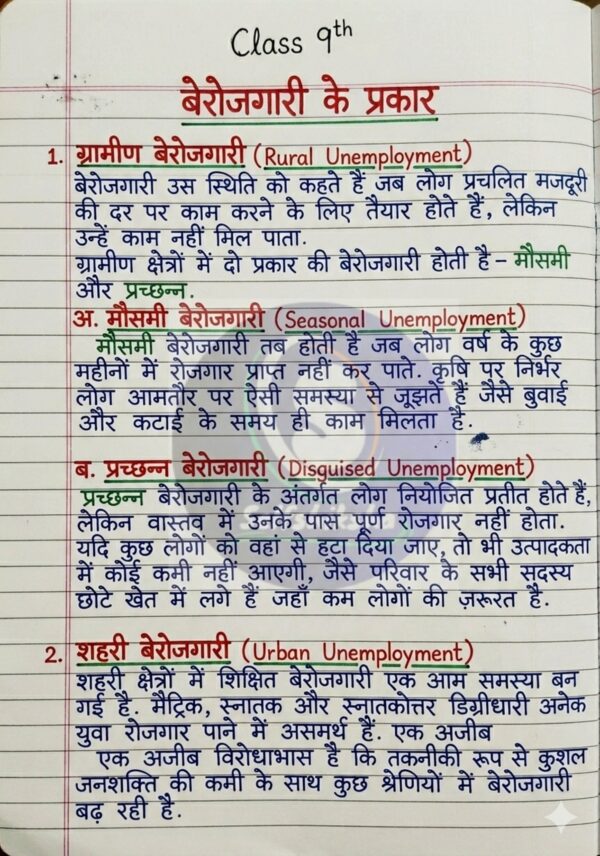 Class 9th
बेरोजगारी के प्रकार
1. ग्रामीण बेरोजगारी (Rural Unemployment)
बेरोजगारी उस स्थिति को कहते हैं जब लोग प्रचलित मजदूरी
की दर पर काम करने के लिए तैयार होते हैं, लेकिन
उन्हें काम नहीं मिल पाता.
ग्रामीण क्षेत्रों में दो प्रकार की बेरोजगारी होती है – मौसमी
और प्रच्छन्न.
अ. मौसमी बेरोजगारी (Seasonal Unemployment)
मौसमी बेरोजगारी तब होती है जब लोग वर्ष के कुछ
महीनों में रोजगार प्राप्त नहीं कर पाते. कृषि पर निर्भर
लोग आमतौर पर ऐसी समस्या से जूझते हैं जैसे बुवाई
और कटाई के समय ही काम मिलता है.
ब. प्रच्छन्न बेरोजगारी (Disguised Unemployment)
प्रच्छन्न बेरोजगारी के अंतर्गत लोग नियोजित प्रतीत होते हैं,
लेकिन वास्तव में उनके पास पूर्ण रोजगार नहीं होता.
यदि कुछ लोगों को वहां से हटा दिया जाए, तो भी उत्पादकता
में कोई कमी नहीं आएगी, जैसे परिवार के सभी सदस्य
छोटे खेत में लगे हैं जहाँ कम लोगों की ज़रूरत है.
2. शहरी बेरोजगारी (Urban Unemployment)
शहरी क्षेत्रों में शिक्षित बेरोजगारी एक आम समस्या बन
गई है. मैट्रिक, स्नातक और स्नातकोत्तर डिग्रीधारी अनेक
युवा रोजगार पाने में असमर्थ हैं. एक अजीब
एक अजीब विरोधाभास है कि तकनीकी रूप से कुशल
जनशक्ति की कमी के साथ कुछ श्रेणियों में बेरोजगारी
बढ़ रही है.